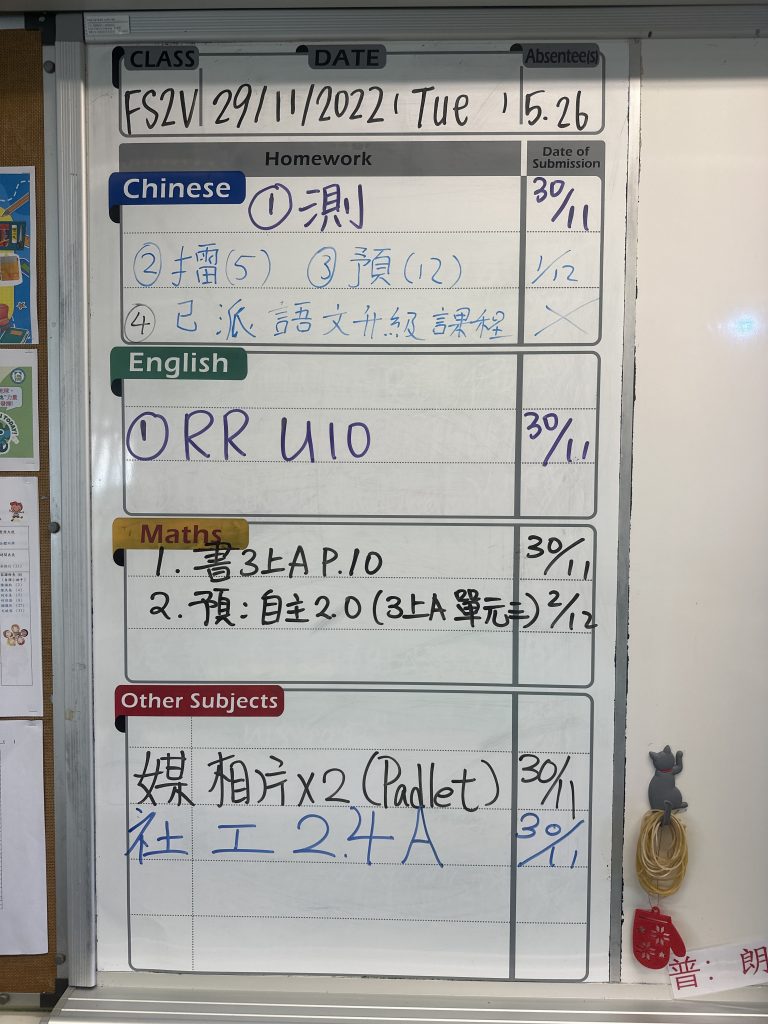 CLASS DATE Absentee(s)
FS2V 29/11/2022, Tue 5.26
Homework Date of Submission
Chinese
① 測 30/11
② 擂(5) ③ 預(12) 1/12
④ 已派語文升級課程 X
English
① RR U10 30/11
Maths
1. 書3上A P.10 30/11
2. 預:自主2.0 (3上A 單元三) 2/12
Other Subjects
媒 相片x2 (Padlet) 30/11
社 工2.4A 30/11
普: 朗